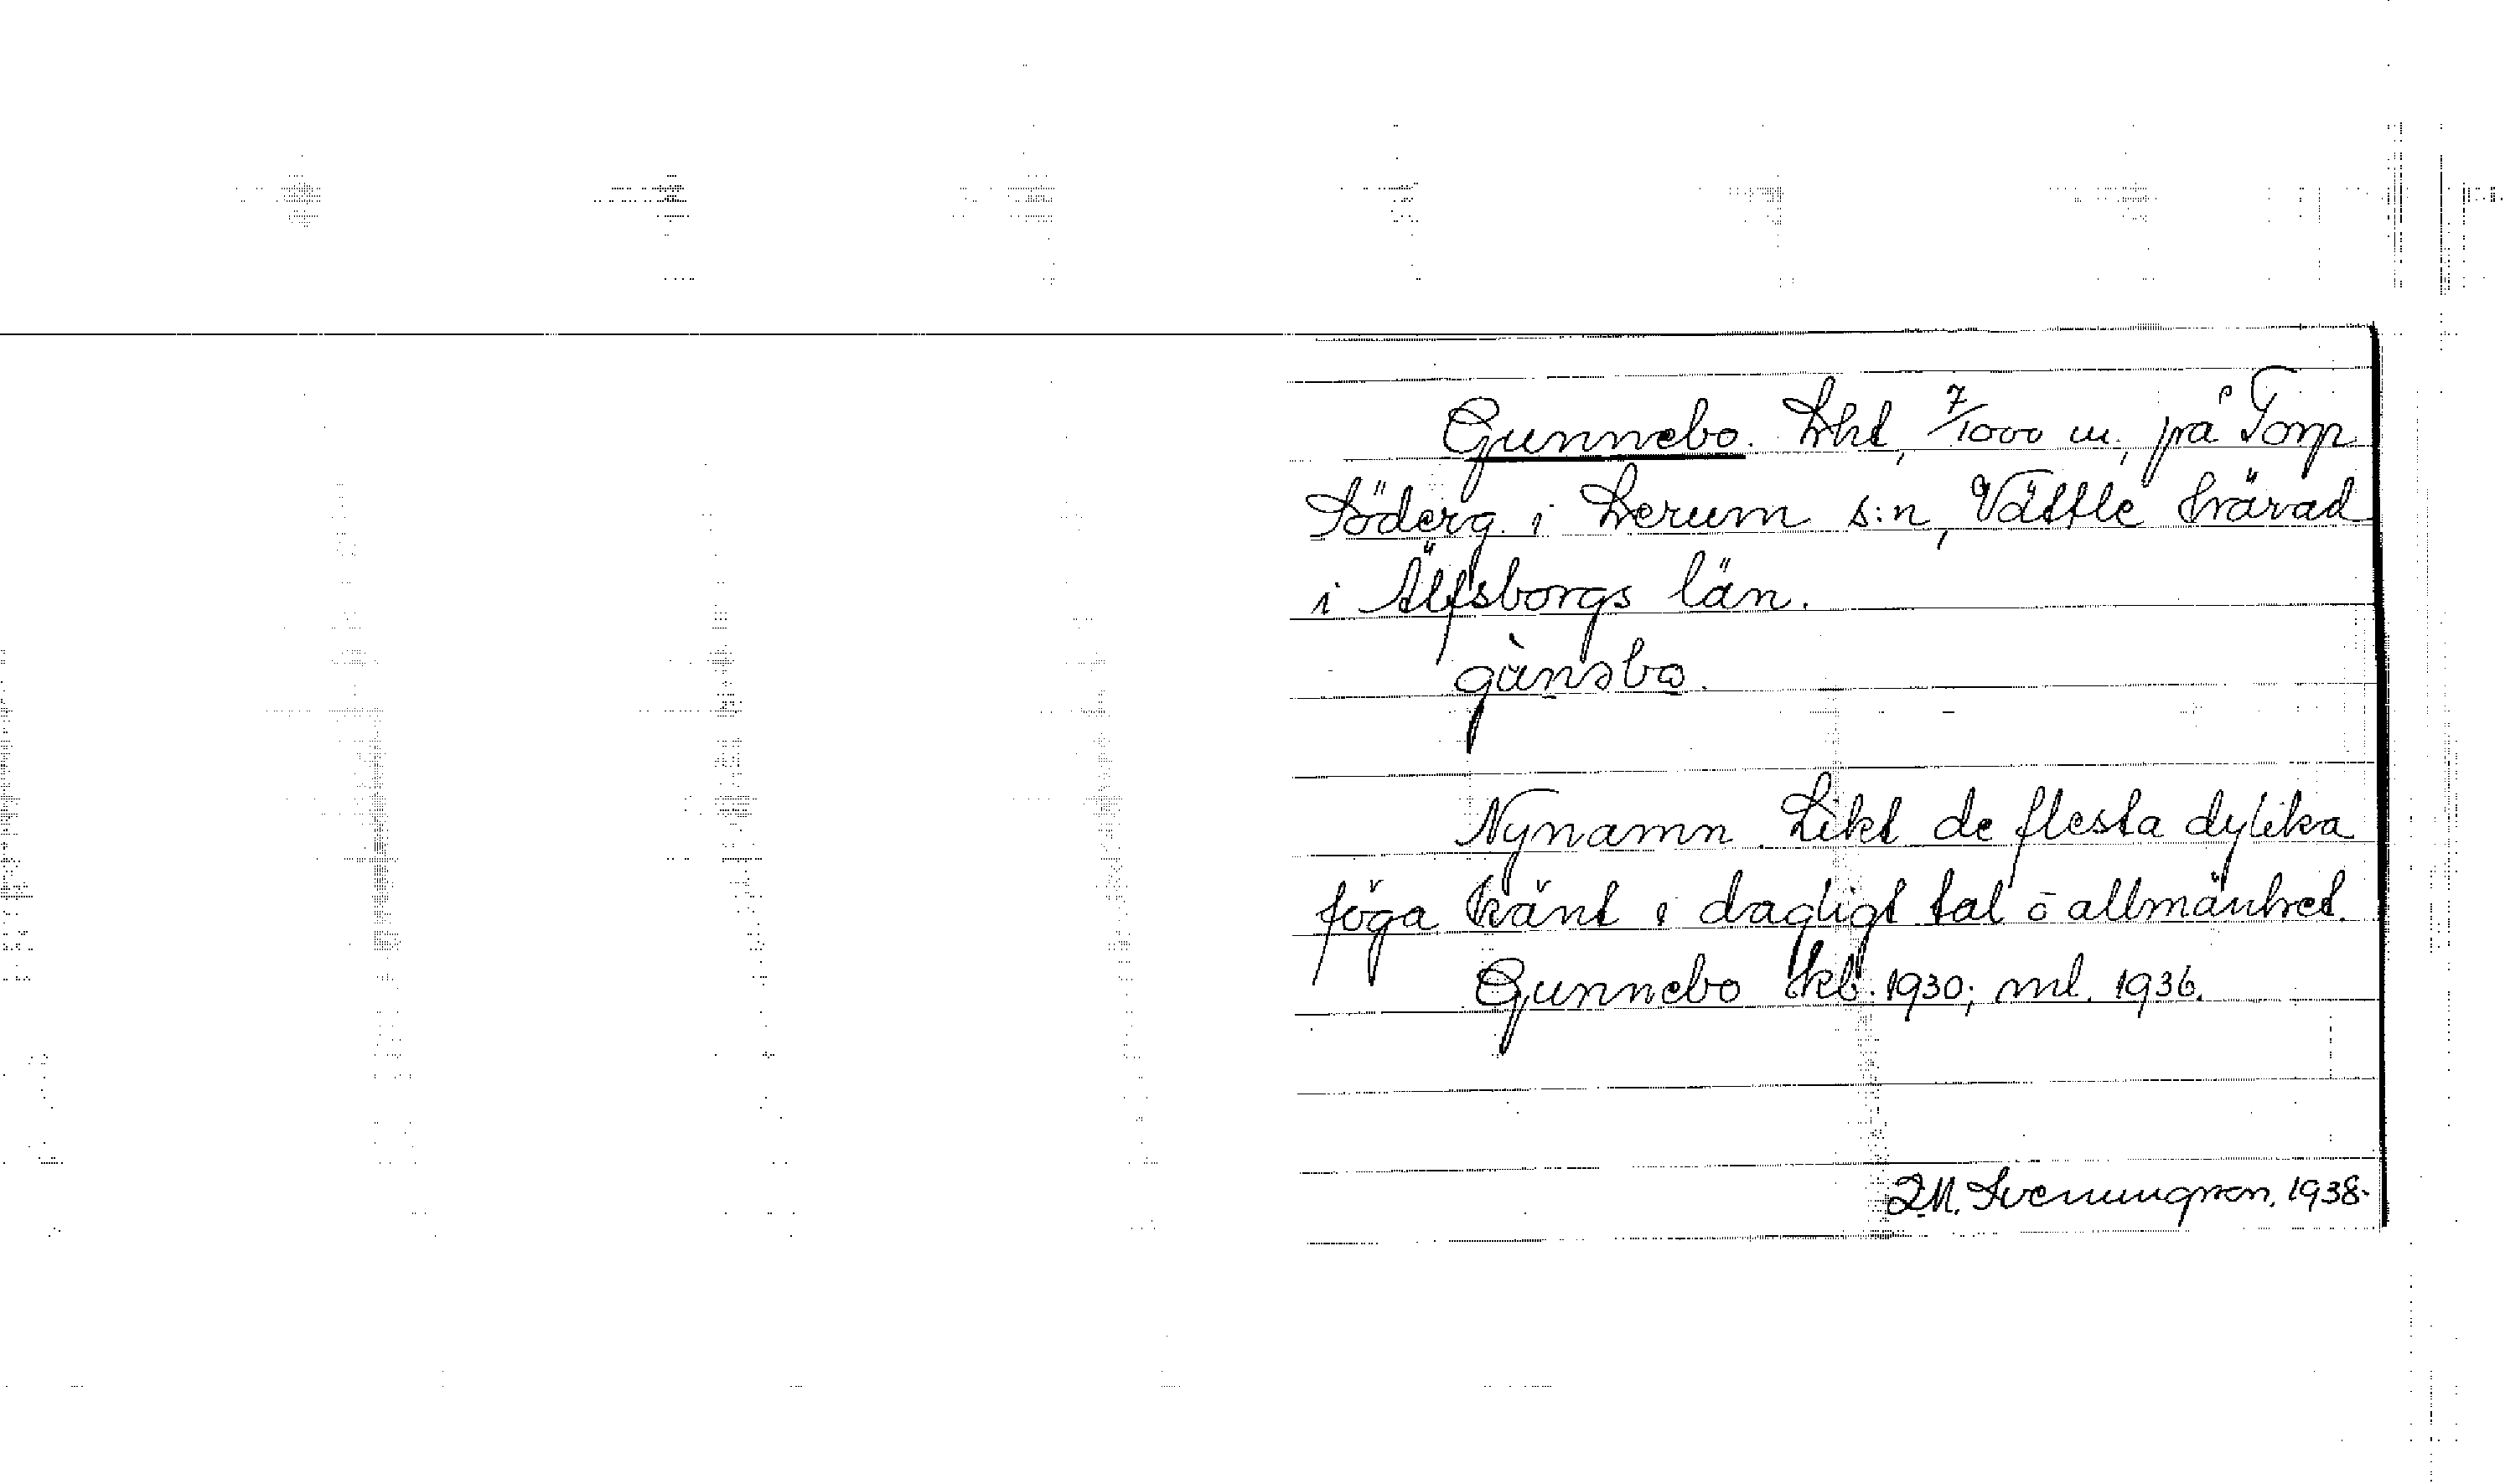 Gunnebo. Lht, 7/1000 m., på Torp
Söderg. i Lerum s:n, Vättle härad
i Älfsborgs län.
gùnsbo.
Nynamn. Likt de flesta dylika
föga känt i dagligt tal o allmänhet.
Gunnebo kb. 1930; ml. 1936.
Svenungson, 1938.